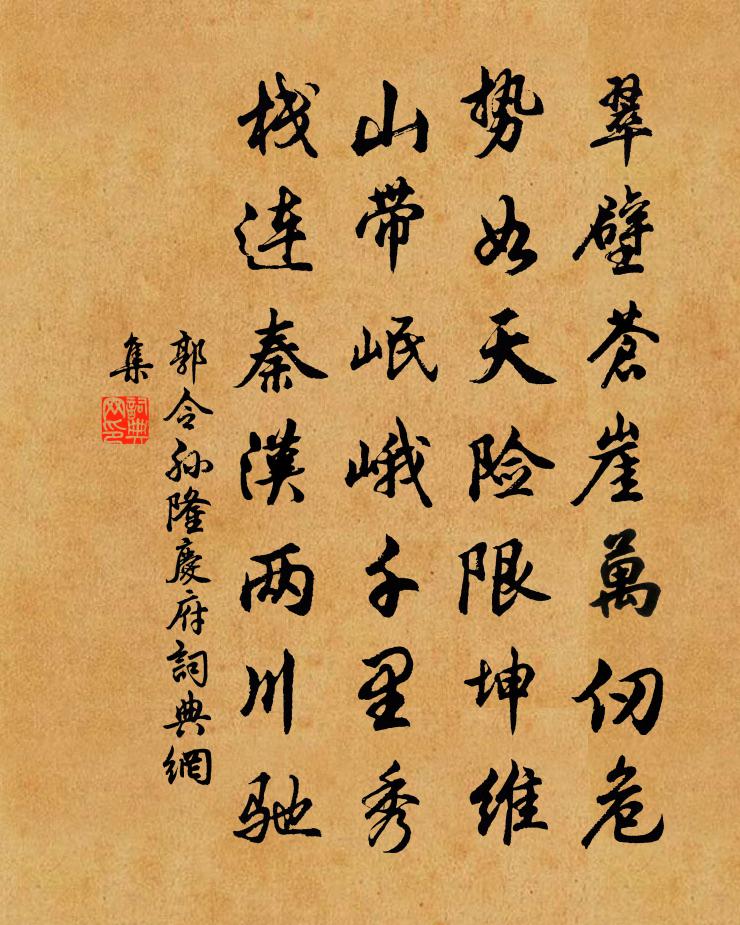 翠壁蒼崖萬仞危
势如天险限坤维
山带岷峨千里秀
栈连秦汉两川驰
郭令孙隆慶府詞典網
集
詞典
网印